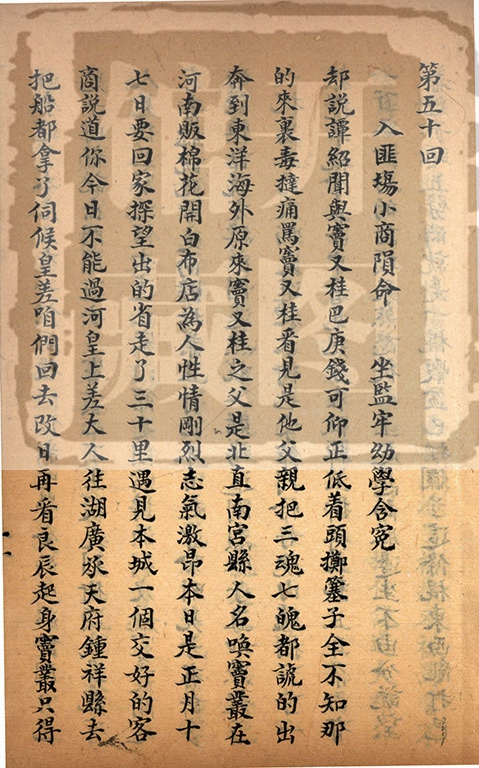 第五十回
入匪塲小商隕命 坐監牢幼學含冤
却說譚紹聞與竇又桂巴庚錢可仰正低着頭擲簺子全不知那
的來裏毒撻痛罵竇又桂看見是他父親把三魂七魄都諕的出
奔到東洋海外原來竇又桂之父是北直南宮縣人名喚竇叢在
河南販棉花開白布店為人性情剛烈志氣激昂本日是正月十
七日要回家探望出的省走了三十里遇見本城一個交好的客
商說道你今日不能過河皇上差大人往湖廣承天府鍾祥縣去
把船都拿了伺候皇差咱們回去改日再看良辰起身竇叢只得